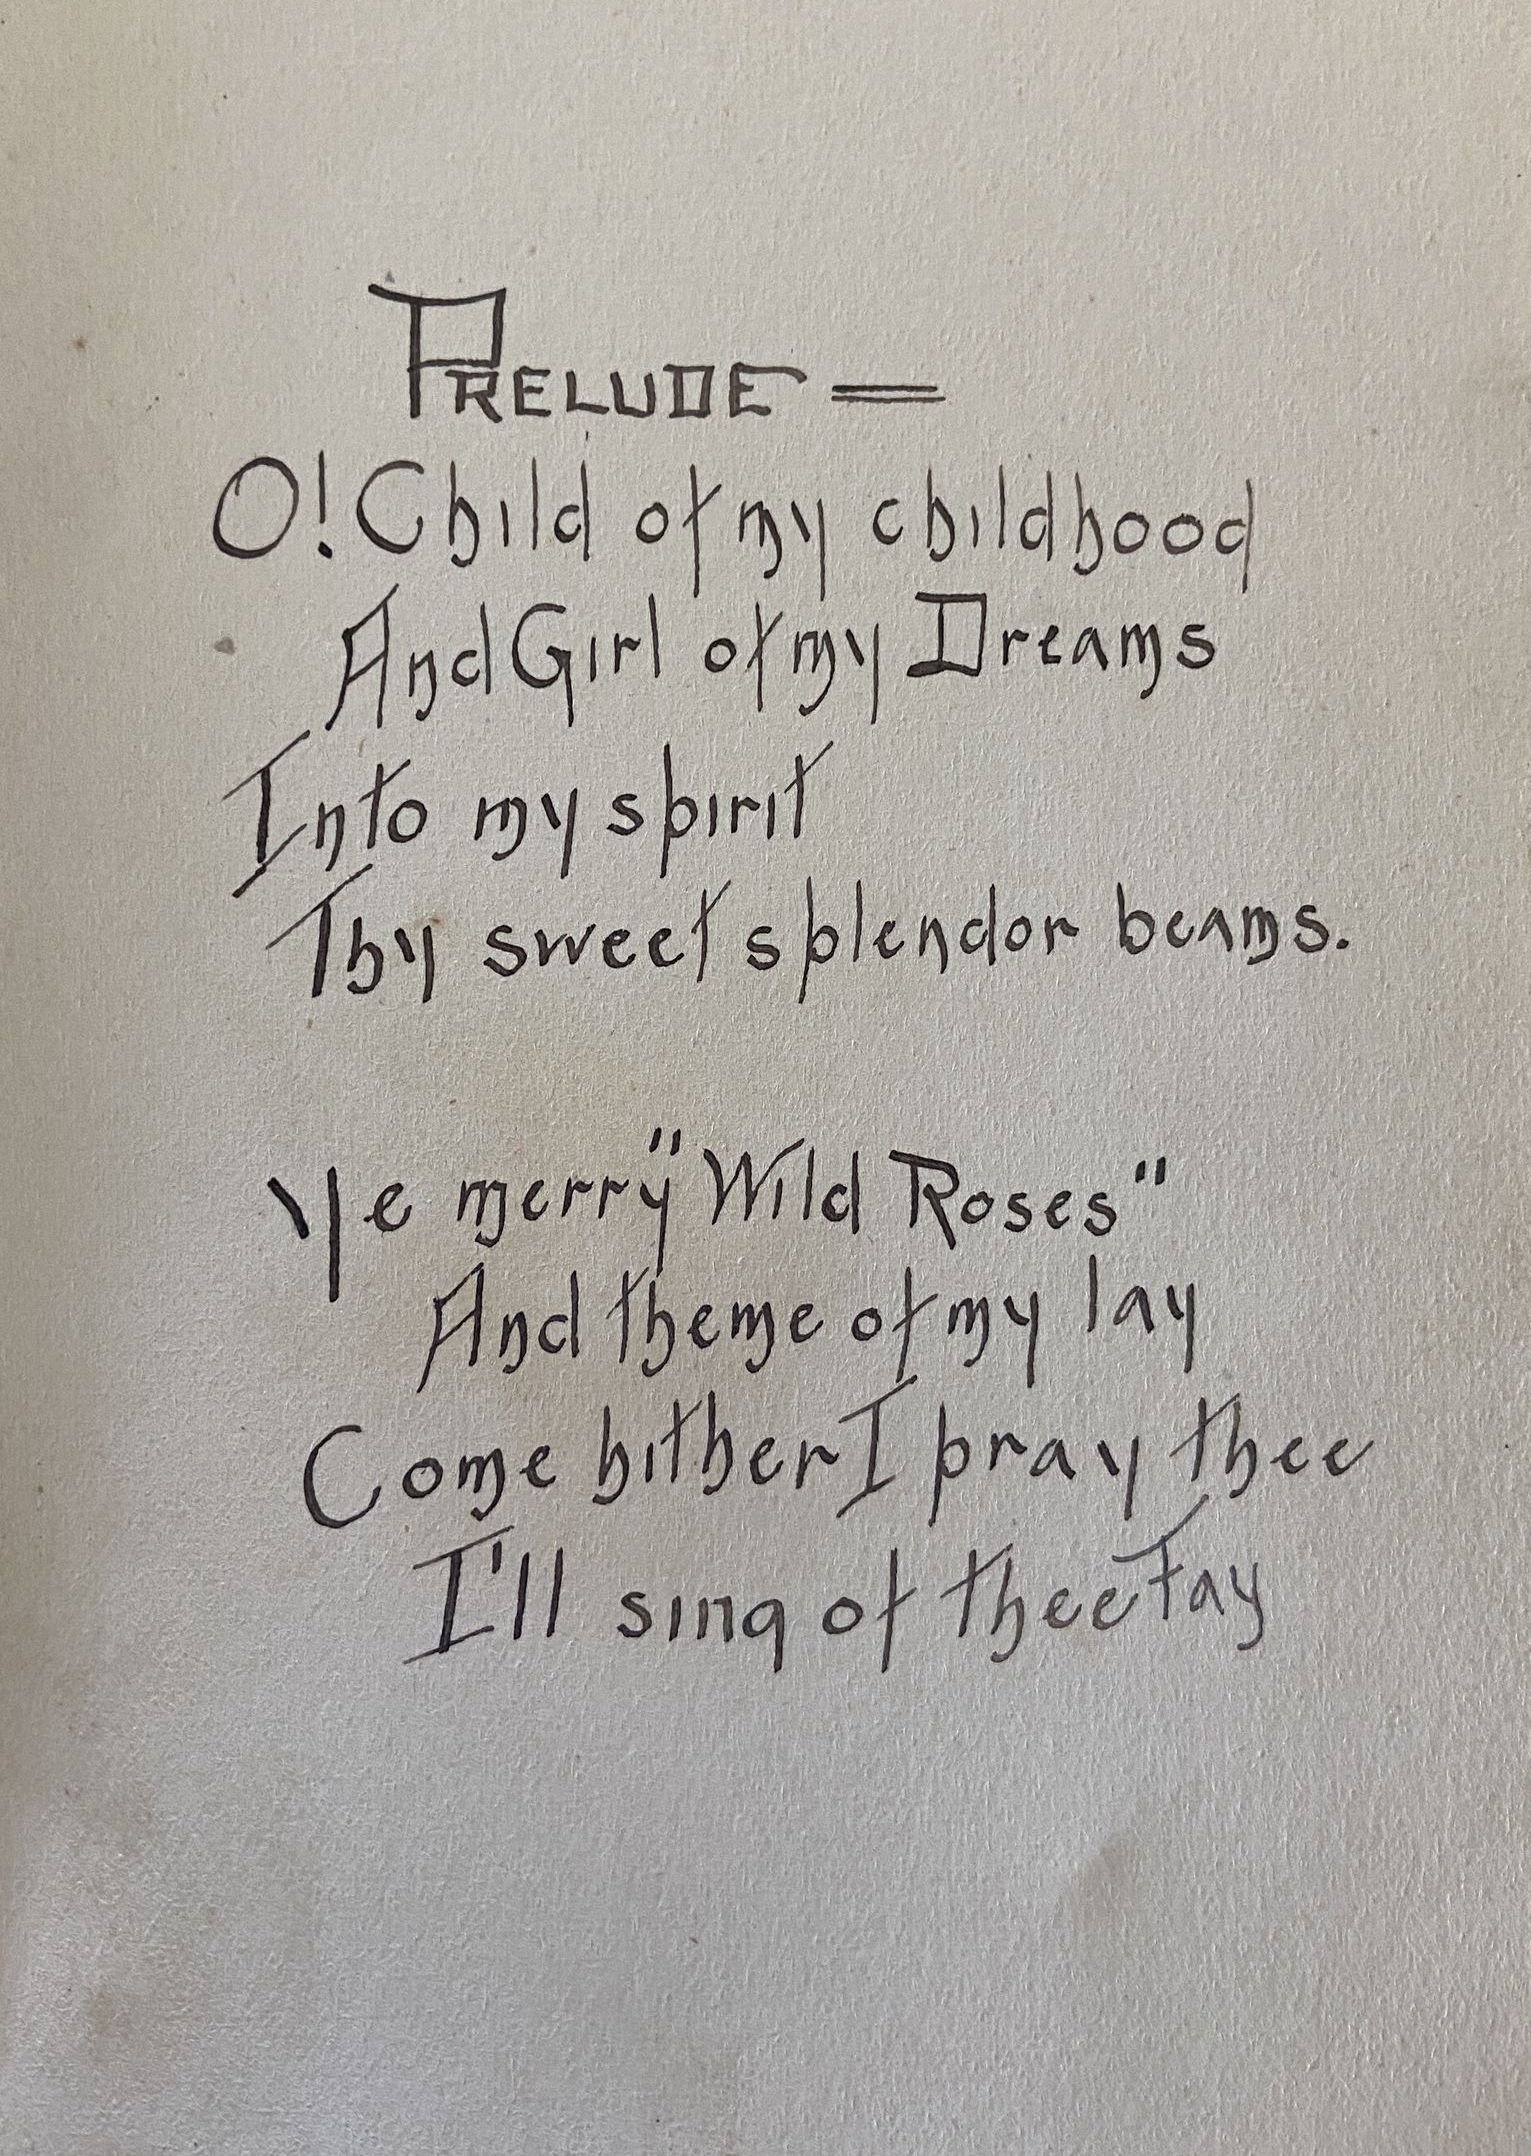 PRELUDE =
O! Child of my childhood
And Girl of my Dreams
Into my spirit
Thy sweet splendor beams.
Ye merry "Wild Roses"
And theme of my lay
Come hither I pray thee
I'll sing of thee Fay